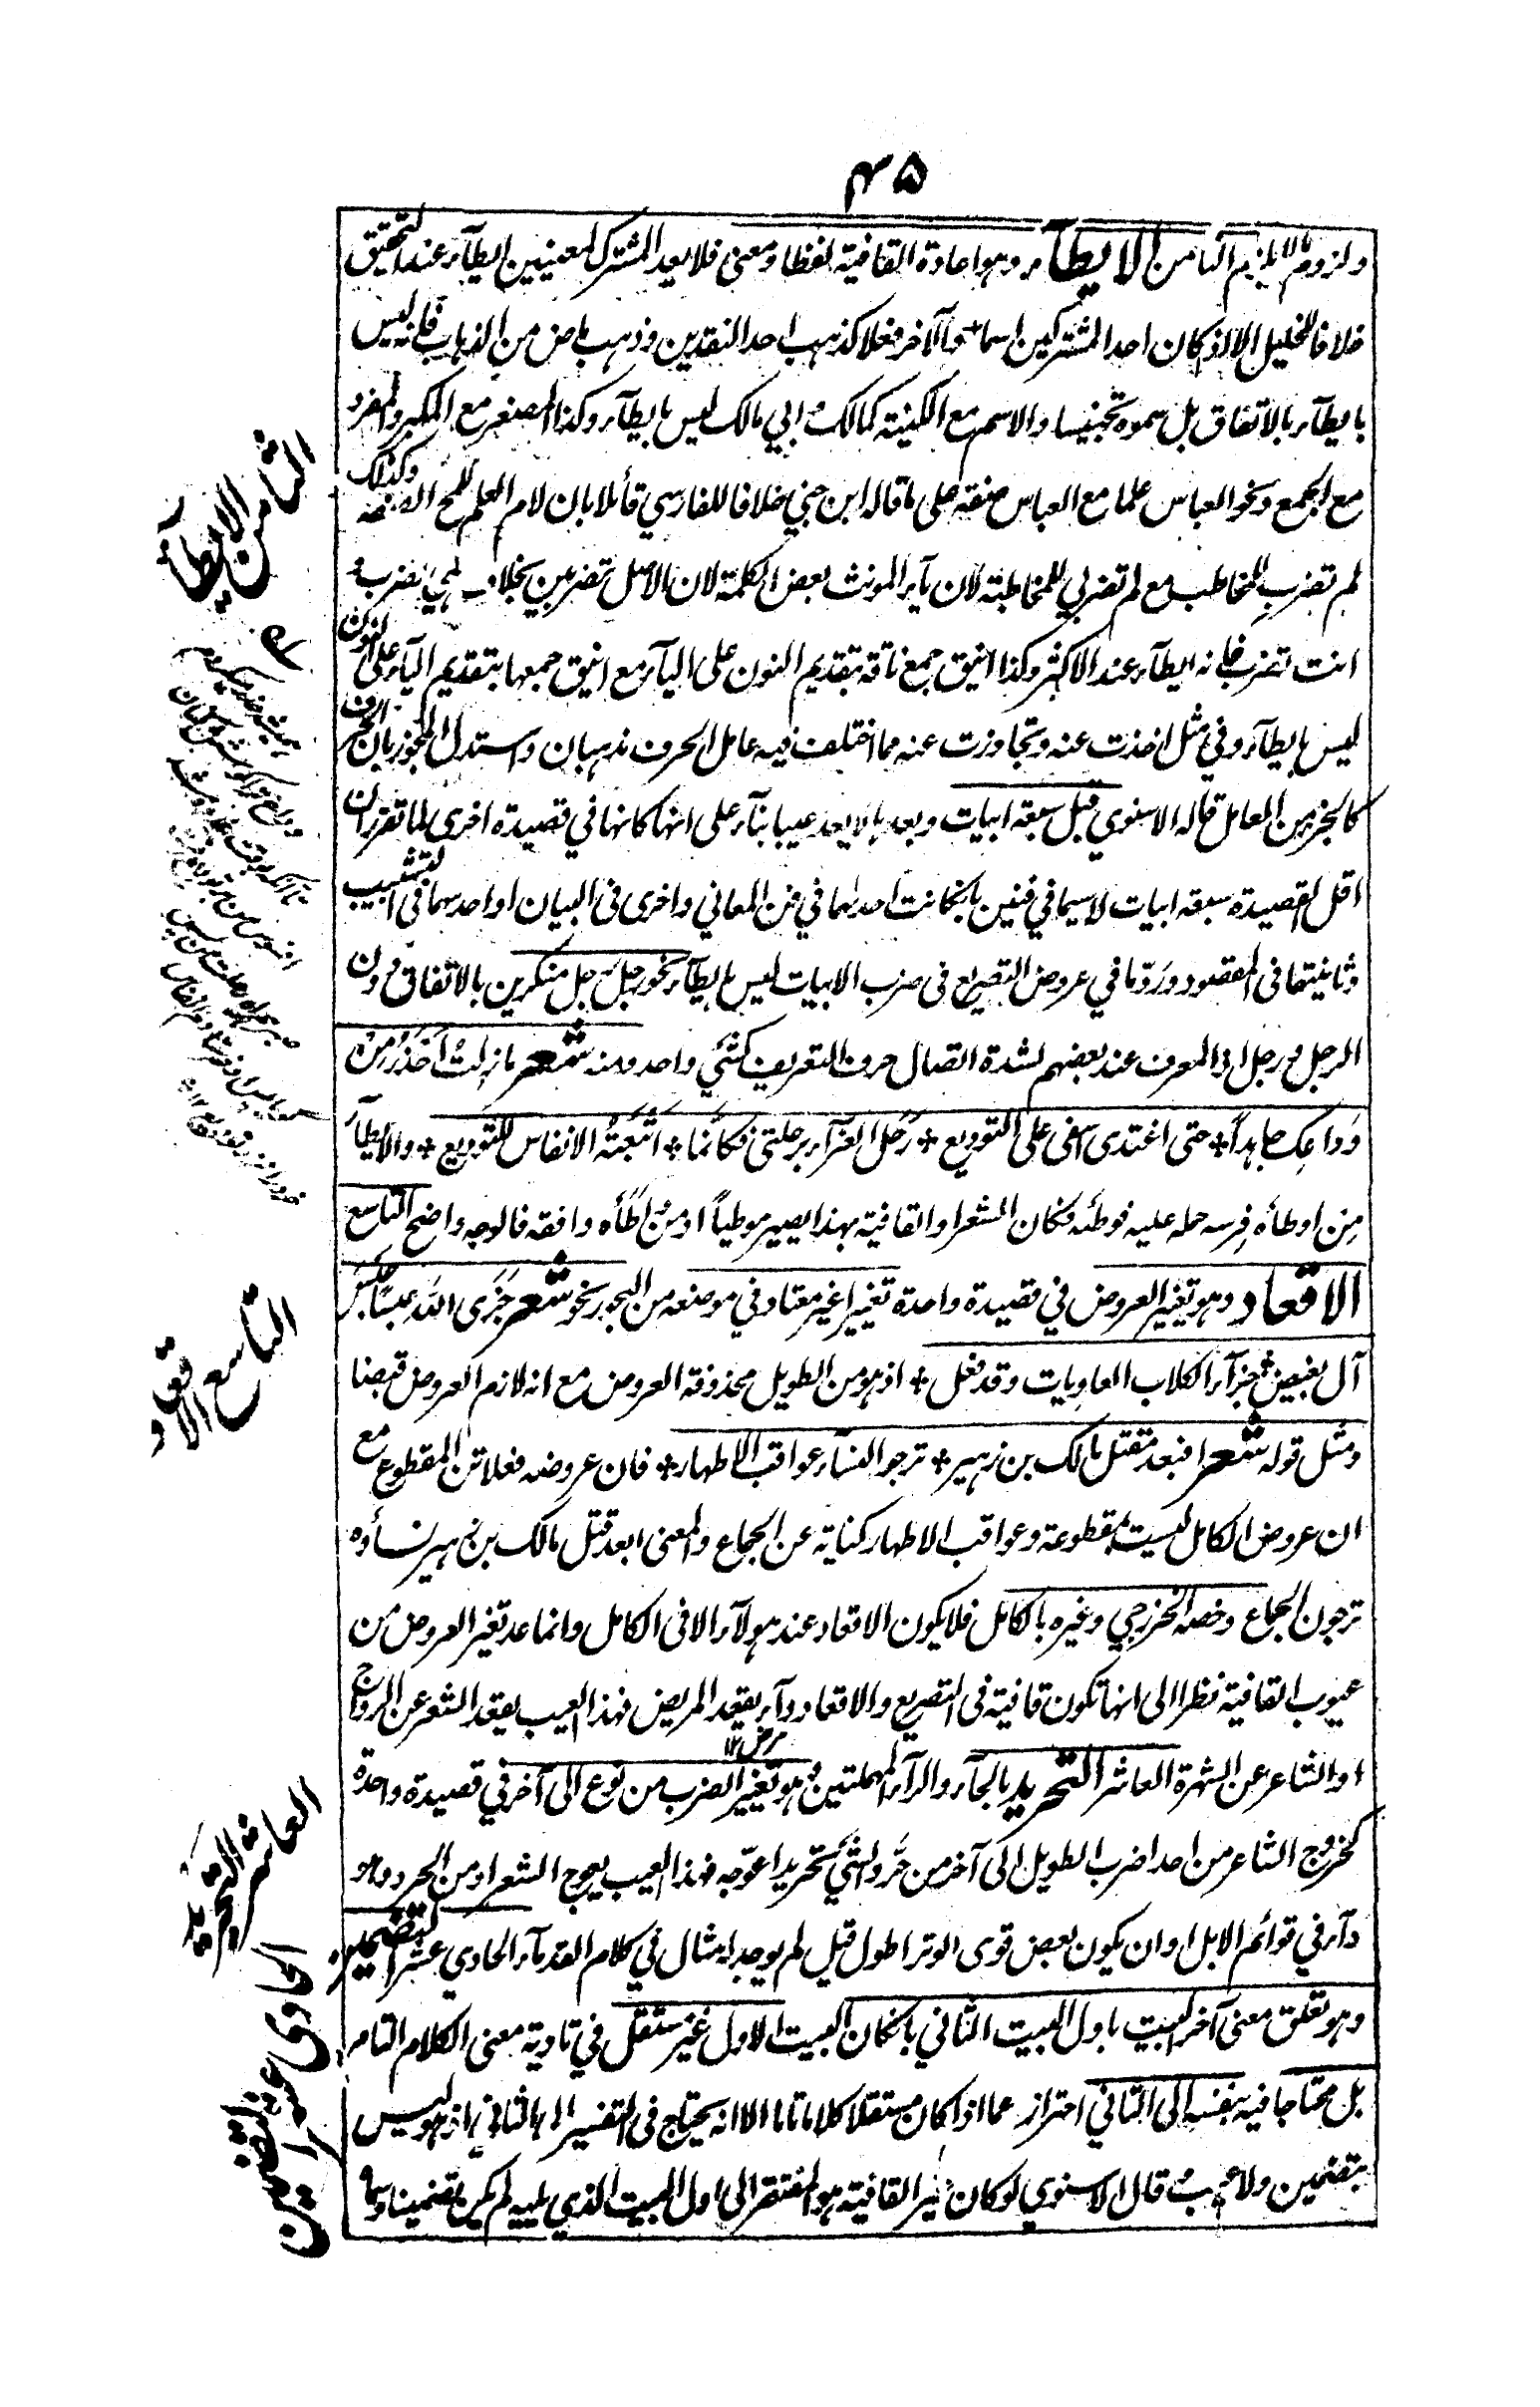 ۴۵
ولزوم ما لا يلزم الثامن الايطآء وهو اعادة القافية لفظا ومعنى فلا يعد المشترك لمعنيين ايطآء عند التحقيق
خلافا للخليل الا اذ كان احد المشتركين اسما والآخر فعلا كذهب احد النقدين وذهب ماض من الذهاب فانه ليس
بايطآء بالاتفاق بل سموه تجنيسا والاسم مع الكنية كمالك وابي مالك ليس بايطآء وكذا المصغر مع المكبر والمفرد
مع الجمع ونحو العباس علما مع العباس صفة على ما قاله ابن جني خلافا للفارسي قائلا بان لام العلم للمح الصفة وكذلك
لم تضرب للمخاطب مع لم تضربي للمخاطبة لان يآء المونث بعض الكلمة لان الاصل تضربين بخلاف هي تضرب و
انت تضرب فانه ايطآء عند الاكثر وكذا انيق جمع ناقة بتقديم النون على اليآء مع اينق جمعها بتقديم اليآء على النون
ليس بايطآء وفي مثل اخذت عنه وتجاوزت عنه مما اختلف فيه عامل الحرف مذهبان واستدل المجوز بان الحرف
كالجزء من العامل قاله الاسنوي قبل سبعة ابيات وبعدها لا يعد عيبا بنآء على انها كانها في قصيدة اخرى لما تقرر ان
اقل القصيدة سبعة ابيات لا سيما في فنين بان كانت احدهما في فن المعاني واخرى في البيان او احدهما في التشبيب
وثانيتها في المقصود وردّ ما في عروض التصريع في ضرب الابيات ليس بايطآء نحو رجل ورجل منكرين بالاتفاق دون
الرجل ورجل اى المعرف عند بعضهم لشدة اتصال حرف التعريف كشيء واحد ومنه شعر ما زلت احذر من
وداعك جاهداً * حتى اغتدى اسفى على التوديع * رحل العزآء برحلتي فكانما * اتبعته الانفاس للتوديع * والايطآء
من اوطأه فرسه حمله عليه فوطئه فكان الشعر او القافية بهذا يصير موطياً او من اطأه وافقه فالوجه واضح التاسع
الاقعاد وهو تغيير العروض في قصيدة واحدة تغييرا غير معتاد في موضعه من البحور نحو شعر جزى الله عبسا عبس
آل بغيض * جزآء الكلاب العاويات وقد فعل * اذ هو من الطويل محذوفة العروض مع انه لازم العروض قبضا
ومثل قوله شعر افبعد مقتل مالك بن زهير * ترجو النسآء عواقب الاطهار * فان عروضه فعلاتن المقطوع مع
ان عروض الكامل ليست مقطوعة وعواقب الاطهار كناية عن الجماع والمعنى ابعد قتل مالك بن زهير نساؤه
ترجون الجماع وخصه الخزرجي وغيره بالكامل فلا يكون الاقعاد عند هولآء الا في الكامل وانما عد تغير العروض من
عيوب القافية نظرا الى انها تكون قافية في التصريع والاقعاد دآء يقعد المريض فهذا العيب يقعد الشعر عن الرواج
او الشاعر عن الشهرة العاشر التحريد بالحآء والرآء المهملتين وهو تغيير الضرب من نوع الى آخر في قصيدة واحدة
مرض ١٢
كخروج الشاعر من احد اضرب الطويل الى آخر من حرد الشيء تحريدا عوّجه فهذا العيب يعوج الشعر او من الحرد وهو
دآء في قوائم الابل او ان يكون بعض قوى الوتر اطول قيل لم يوجد امثال في كلام القدمآء الحادي عشر التضمين
وهو تعلق معنى آخر البيت باول البيت الثاني بان كان البيت الاول غير مستقل في تادية معنى الكلام التام
بل محتاجا فيه بنفسه الى الثاني احتراز عما اذا كان مستقلا كلاما تاما الا انه يحتاج في التفسير الى الثاني اذ هو ليس
بتضمين ولا عيب قال الاسنوي لو كان غير القافية هو المفتقر الى اول البيت الذي يليه لم يكن تضمينا وسماه
الثامن الايطآء
التاسع الاقعاد
العاشر التحريد
الحادي عشر التضمين